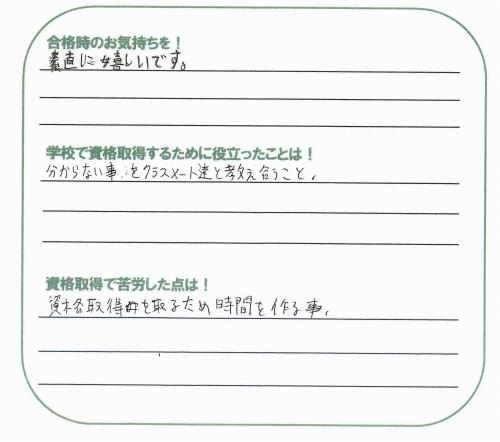 合格時のお気持ちを！
素直に嬉しいです。
学校で資格取得するために役立ったことは！
分からない事をクラスメート達と教え合うこと。
資格取得で苦労した点は！
資格取得を取るため時間を作る事。